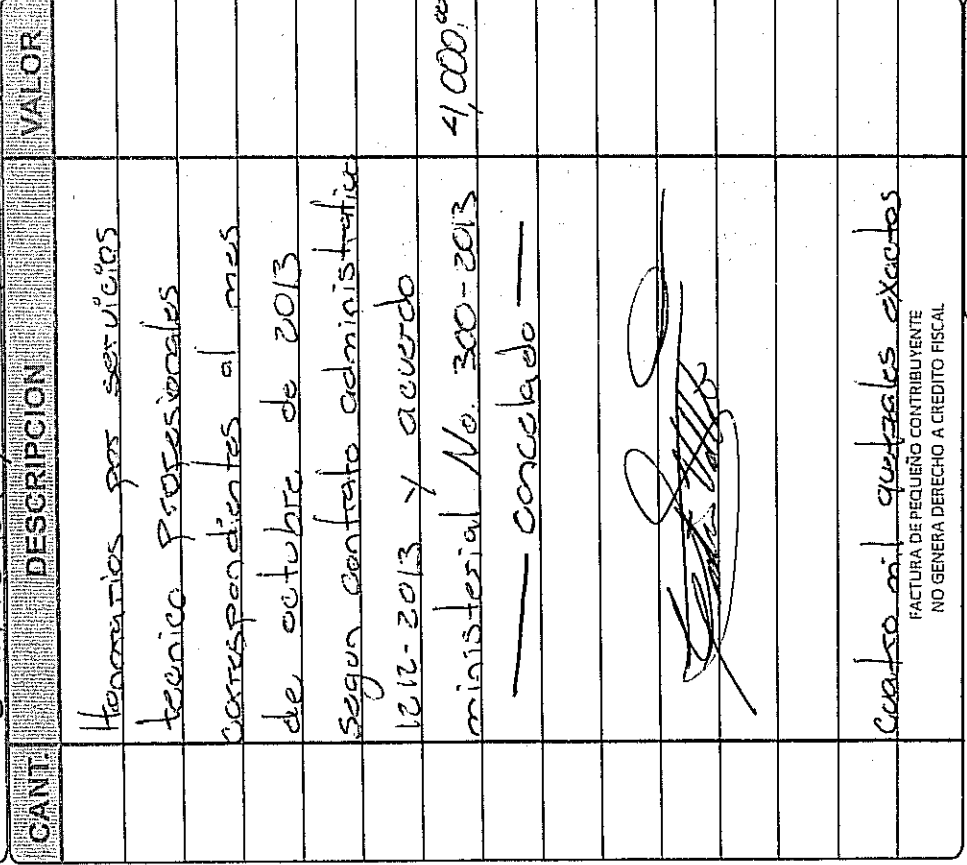 CANT. DESCRIPCION VALOR
Honorarios por servicios
tecnico profesionales
correspondientes al mes
de octubre de 2013
Segun contrato administrativo
1212-2013 y acuerdo
ministerial No. 300-2013 4,000.00
— cancelado —
Cuatro mil quetzales exactos
FACTURA DE PEQUEÑO CONTRIBUYENTE
NO GENERA DERECHO A CREDITO FISCAL